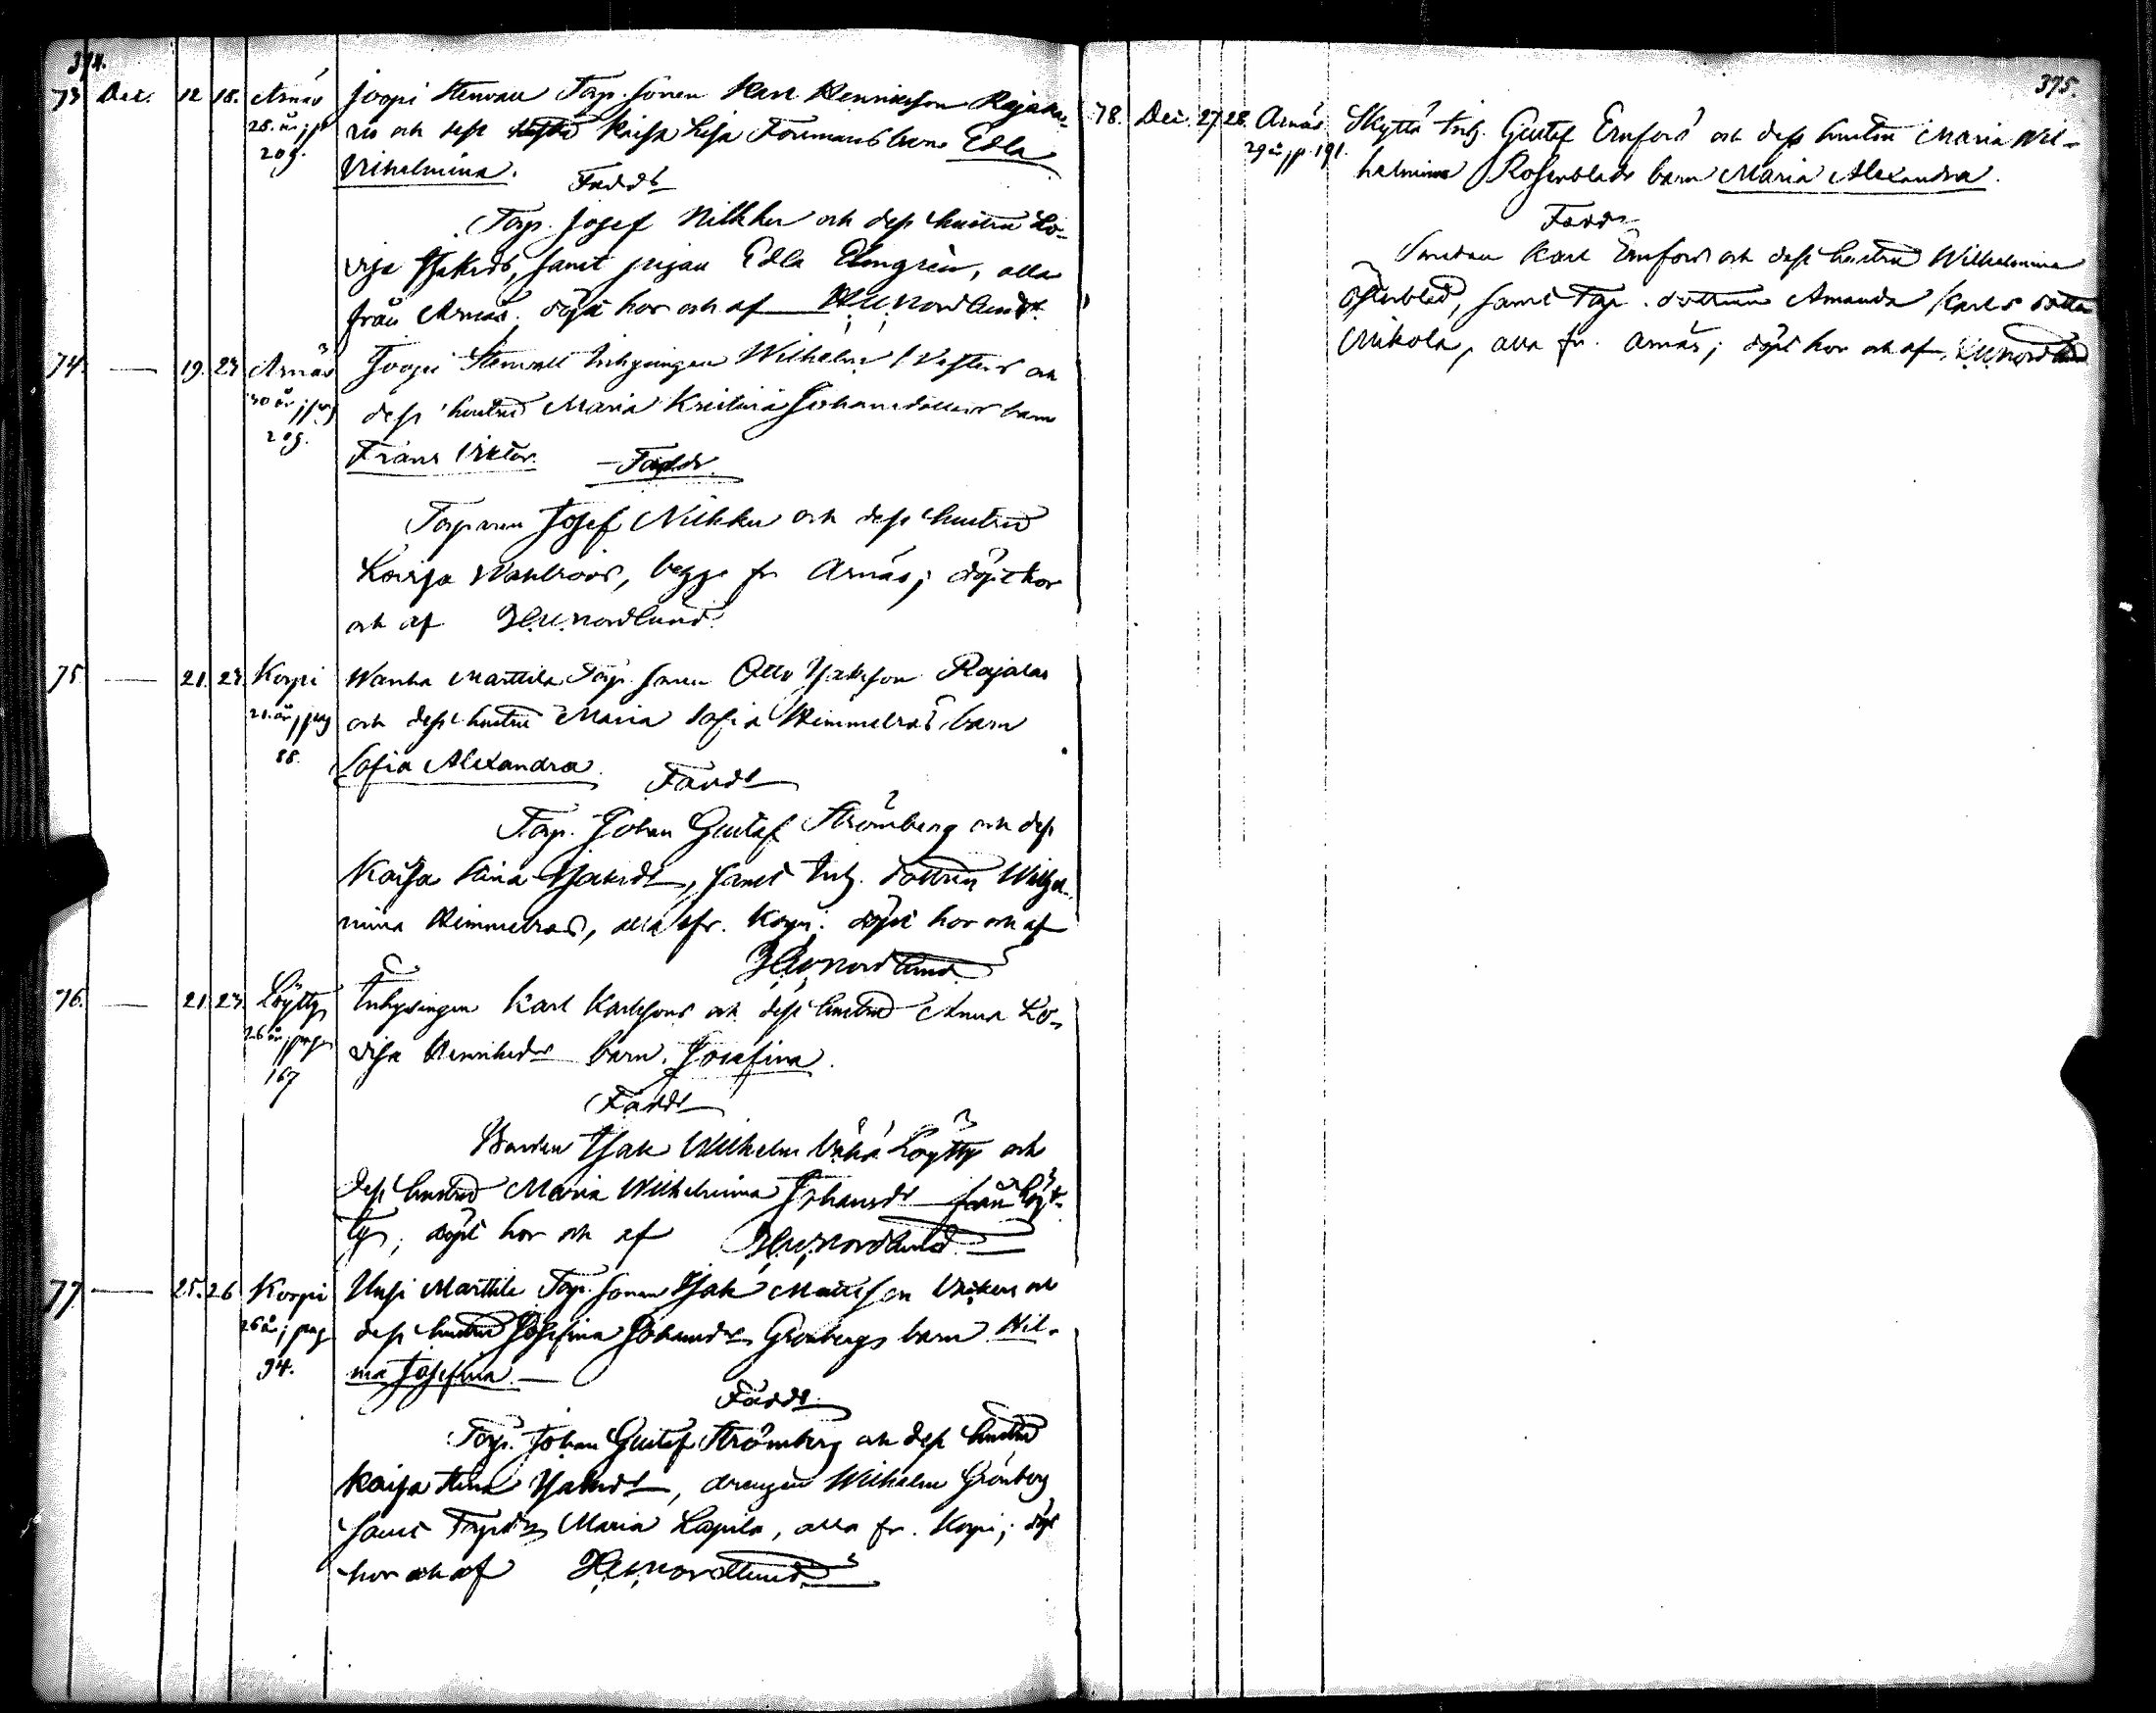 374.
73 Dec. 12 18. Arnäs Joopi Stenvall Torp. sonen Karl Henriksson Rajala-
25. år; p. rus och dess hustru Kaisa Lisa Fourmans barn Edla
209. Vilhelmina.
Fadd.
Torp. Josef Nikku och dess hustru Lo-
visa Isaksdr, samt pigan Edla Elmgrén, alla
från Arnäs; döpt hos och af H. W. Nordlund.
74. — 19. 27 Arnäs Joopi Stenvall Inhysingen Wilhelm och
30 år; pag dess hustru Maria Kristina Johansdotters barn
209. Frans Viktor. Fadd.
Torparen Josef Nikku och dess hustru
Lovisa Wahlroos, begge fr. Arnäs; döpt hos
och af H. W. Nordlund
75. — 21. 27. Korpi Wanha Marttila Torp. sonen Otto Isaksson Rajalas
21. år, pag och dess hustru Maria Sofia Himmelroos barn
88. Sofia Alexandra.
Fadd.
Torp. Johan Gustaf Strömberg och dess
Kaisa Stina Isaksdr, samt Inh. dottren Wilhel-
mina Himmelroos, alla fr. Korpi. döpt hos och af
H. W. Nordlund
76. — 21. 27. Löytty Inhysingen Karl Karlssons och dess hustru Anna Lo-
26 år, pag visa Henriksdr barn Josefina.
167
Fadd.
Bonden Isak Wilhelm Vähä Löytty och
dess hustru Maria Wilhelmina Johansdr från Löyt-
ty; döpt hos och af H. W. Nordlund
77 — 25. 26 Korpi Uusi Marttila Torp. sonen Isak Mattsson och
26 år; pag dess hustru Josefina Johansdr Grönbergs barn Wil-
94. ma Josefina.
Fadd.
Torp. Johan Gustaf Strömberg och dess hustru
Kaisa Stina Isaksdr, drengen Wilhelm Grönberg
samt Torpdr Maria Lapila, alla fr. Korpi; döpt
hos och af H. W. Nordlund
375.
78. Dec. 27 28. Arnäs Skyttä Inh. Gustaf Ernfors och dess hustru Maria Wil-
29 år p. 191. helmina Rosenblads barn Maria Alexandra.
Fadd.
Smeden Karl Ernfors och dess hustru Wilhelmina
Österblad, samt Torp. dottren Amanda Karls dotter
Mikola, alla fr. Arnäs; döpt hos och af H. W. Nordlund